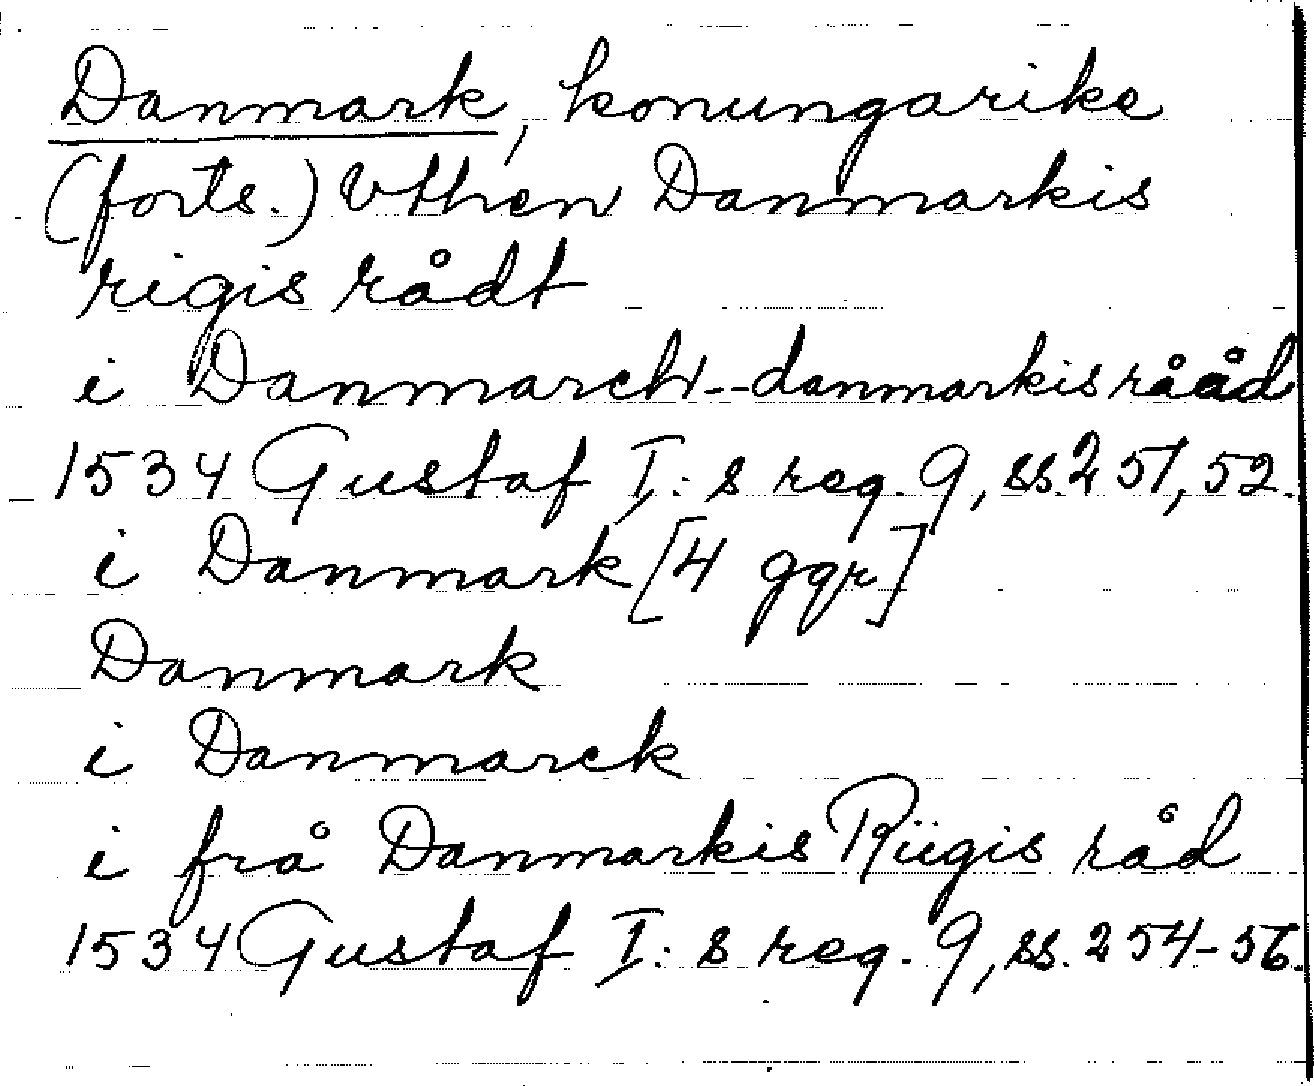 Danmark, konungarike
(forts.) Vthen Danmarkis
rigis rådt
i Danmarch--danmarkis rååd
1534 Gustaf I:s reg. 9, ss. 251, 52.
i Danmark [4 ggr]
Danmark
i Danmarck
i frå Danmarkis Riigis råd
1534 Gustaf I:s reg. 9, ss. 254-56.